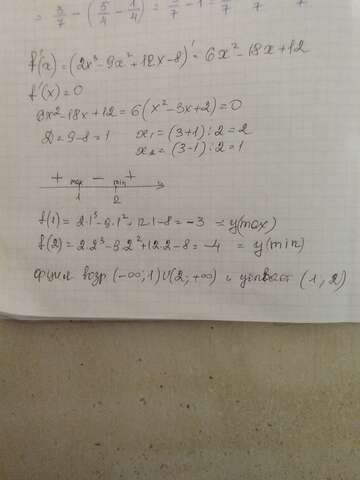 = 3/7 - (5/4 - 1/4) = 3/7 - 1 =
f'(x) = (2x³ - 9x² + 12x - 8)' = 6x² - 18x + 12
f'(x) = 0
6x² - 18x + 12 = 6(x² - 3x + 2) = 0
D = 9 - 8 = 1 x₁ = (3+1) : 2 = 2
x₂ = (3-1) : 2 = 1
+ max - min +
1 2
f(1) = 2·1³ - 9·1² + 12·1 - 8 = -3 = y(max)
f(2) = 2·2³ - 9·2² + 12·2 - 8 = -4 = y(min)
возр (-∞; 1) U (2; +∞) и (1, 2)